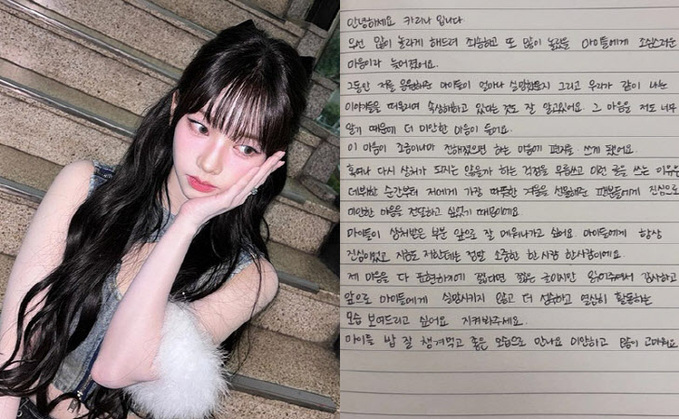 안녕하세요 카리나 입니다
우선 많이 놀라게 해드려 죄송하고 또 많이 놀랐을 마이들에게 조심스러운
마음이라 늦어졌어요.
그동안 저를 응원해준 마이들이 얼마나 실망했을지 그리고 우리가 같이 나눈
이야기들을 떠올리며 속상해하고 있다는 것도 잘 알고있어요. 그 마음을 저도 너무
알기 때문에 더 미안한 마음이 들어요.
이 마음이 조금이나마 전해졌으면 하는 마음에 편지를 쓰게 됐어요.
혹여나 다시 상처가 되지는 않을까 하는 걱정을 무릅쓰고 이런 글을 쓰는 이유는
데뷔한 순간부터 저에게 가장 따뜻한 겨울을 선물해준 팬분들에게 진심으로
미안한 마음을 전달하고 싶었기 때문이에요.
마이들이 상처받은 부분 앞으로 잘 메워나가고 싶어요. 마이들에게 항상
진심이었고 지금도 저한테는 정말 소중한 한 사람 한사람이에요.
제 마음을 다 표현하기에 짧다면 짧은 글이지만 읽어주셔서 감사하고
앞으로 마이들에게 실망시키지 않고 더 성숙하고 열심히 활동하는
모습 보여드리고 싶어요 지켜봐주세요.
마이들 밥 잘 챙겨먹고 좋은 모습으로 만나요 미안하고 많이 고마워요